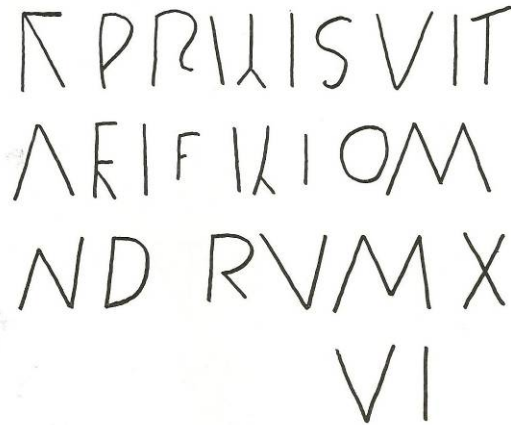 APRILISVIT
AEIFILIOM
ND RVMX
VI